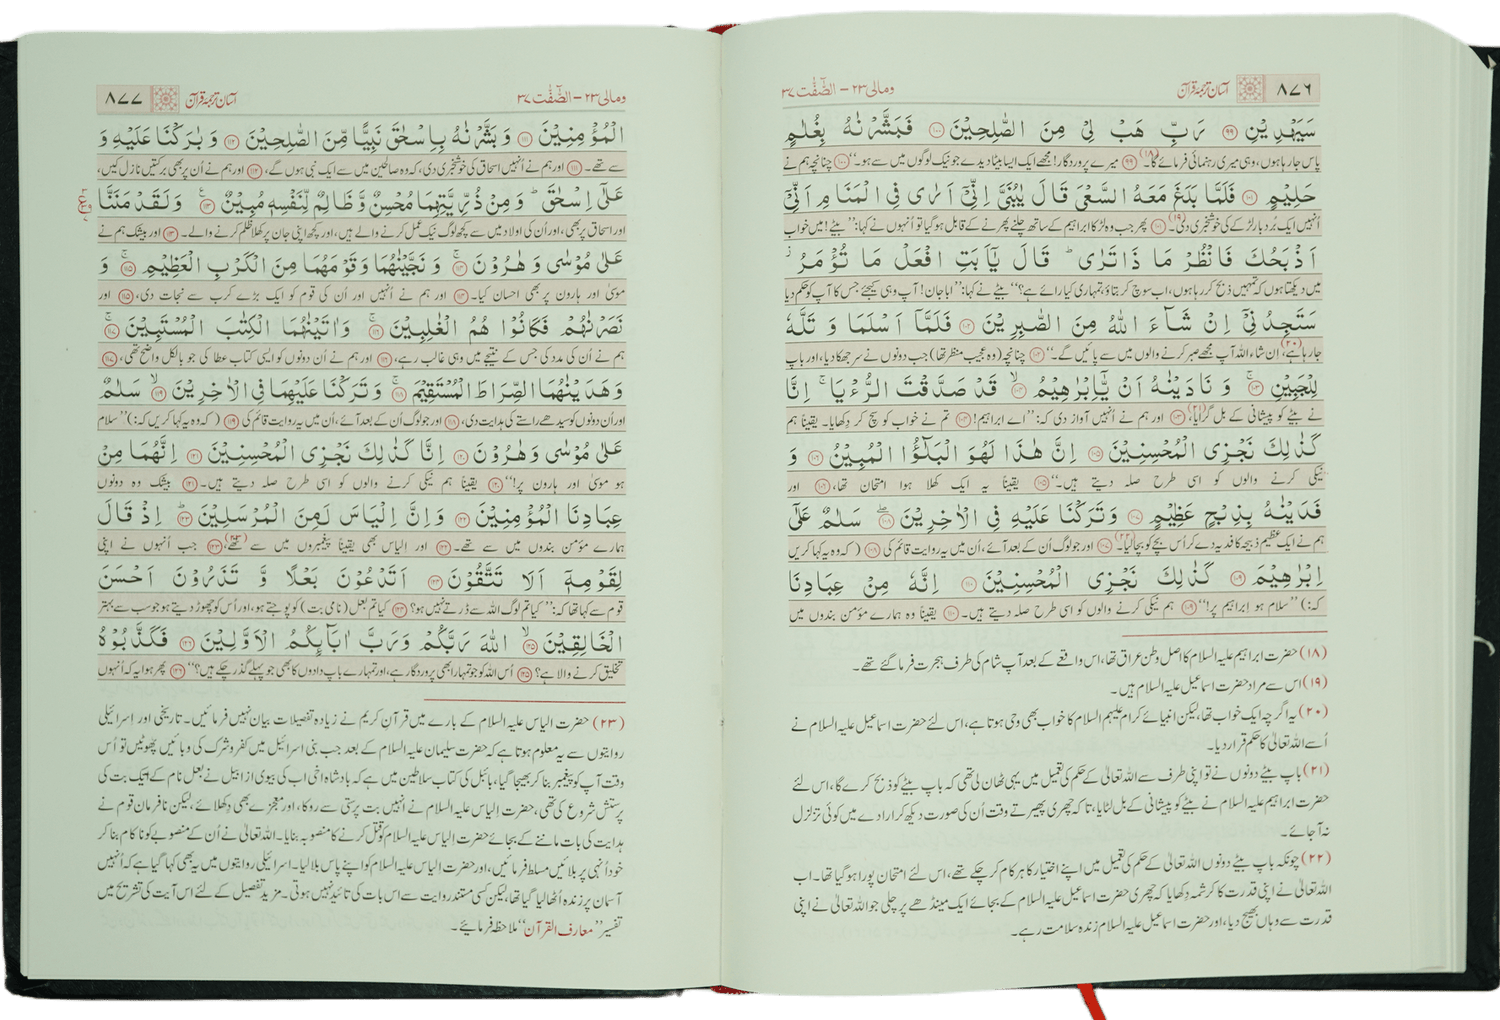 ۸۷۶ آسان ترجمۂ قرآن ومالی ۲۳ – الصّٰٓفّٰت ۳۷
سَيَهْدِيْنِ ۹۹ رَبِّ هَبْ لِيْ مِنَ الصّٰلِحِيْنَ ۱۰۰ فَبَشَّرْنٰهُ بِغُلٰمٍ
پاس جارہا ہوں، وہی میری رہنمائی فرمائے گا۔(۱۸) ۹۹ میرے پروردگار! مجھے ایک ایسا بیٹا دیدے جو نیک لوگوں میں سے ہو۔“ ۱۰۰ چنانچہ ہم نے
حَلِيْمٍ ۱۰۱ فَلَمَّا بَلَغَ مَعَهُ السَّعْيَ قَالَ يٰبُنَيَّ اِنِّيْۤ اَرٰى فِى الْمَنَامِ اَنِّيْۤ
اُنہیں ایک بُردبار لڑکے کی خوشخبری دی۔(۱۹) ۱۰۱ پھر جب وہ لڑکا ابراہیم کے ساتھ چلنے پھرنے کے قابل ہوگیا تو اُنہوں نے کہا: ”بیٹے! میں خواب
اَذْبَحُكَ فَانْظُرْ مَا ذَا تَرٰى ؕ قَالَ يٰۤاَبَتِ افْعَلْ مَا تُؤْمَرُ ؗ
میں دیکھتا ہوں کہ تمہیں ذبح کر رہا ہوں، اب سوچ کر بتاؤ، تمہاری کیا رائے ہے؟“ بیٹے نے کہا: ”ابا جان! آپ وہی کیجئے جس کا آپ کو حکم دیا
سَتَجِدُنِيْۤ اِنْ شَآءَ اللّٰهُ مِنَ الصّٰبِرِيْنَ ۱۰۲ فَلَمَّاۤ اَسْلَمَا وَ تَلَّهٗ
جارہا ہے،(۲۰) اِن شاء اللہ آپ مجھے صبر کرنے والوں میں سے پائیں گے۔“ ۱۰۲ چنانچہ (وہ عجیب منظر تھا) جب دونوں نے سر جھکا دیا، اور باپ
لِلْجَبِيْنِ ۱۰۳ وَ نَادَيْنٰهُ اَنْ يّٰۤاِبْرٰهِيْمُ ۱۰۴ قَدْ صَدَّقْتَ الرُّءْيَا ۚ اِنَّا
نے بیٹے کو پیشانی کے بل گرایا،(۲۱) ۱۰۳ اور ہم نے اُنہیں آواز دی کہ: ”اے ابراہیم! ۱۰۴ تم نے خواب کو سچ کر دِکھایا۔ یقیناً ہم
كَذٰلِكَ نَجْزِى الْمُحْسِنِيْنَ ۱۰۵ اِنَّ هٰذَا لَهُوَ الْبَلٰٓؤُا الْمُبِيْنُ ۱۰۶ وَ
نیکی کرنے والوں کو اسی طرح صلہ دیتے ہیں۔“ ۱۰۵ یقیناً یہ ایک کھلا ہوا امتحان تھا، ۱۰۶ اور
فَدَيْنٰهُ بِذِبْحٍ عَظِيْمٍ ۱۰۷ وَ تَرَكْنَا عَلَيْهِ فِى الْاٰخِرِيْنَ ۱۰۸ سَلٰمٌ عَلٰۤى
ہم نے ایک عظیم ذبیحہ کا فدیہ دے کر اُس بچے کو بچا لیا۔(۲۲) ۱۰۷ اور جو لوگ اُن کے بعد آئے، اُن میں یہ روایت قائم کی ۱۰۸ (کہ وہ یہ کہا کریں
اِبْرٰهِيْمَ ۱۰۹ كَذٰلِكَ نَجْزِى الْمُحْسِنِيْنَ ۱۱۰ اِنَّهٗ مِنْ عِبَادِنَا
کہ:) ”سلام ہو ابراہیم پر!“ ۱۰۹ ہم نیکی کرنے والوں کو اسی طرح صلہ دیتے ہیں۔ ۱۱۰ یقیناً وہ ہمارے مؤمن بندوں میں
(۱۸) حضرت ابراہیم علیہ السلام کا اصل وطن عراق تھا، اس واقعے کے بعد آپ شام کی طرف ہجرت فرما گئے تھے۔
(۱۹) اس سے مراد حضرت اسماعیل علیہ السلام ہیں۔
(۲۰) یہ اگرچہ ایک خواب تھا، لیکن انبیائے کرام علیہم السلام کا خواب بھی وحی ہوتا ہے، اس لئے حضرت اسماعیل علیہ السلام نے
اُسے اللہ تعالیٰ کا حکم قرار دیا۔
(۲۱) باپ بیٹے دونوں نے تو اپنی طرف سے اللہ تعالیٰ کے حکم کی تعمیل میں یہی ٹھان لی تھی کہ باپ بیٹے کو ذبح کرے گا، اس لئے
حضرت ابراہیم علیہ السلام نے بیٹے کو پیشانی کے بل لٹایا، تاکہ چھری پھیرتے وقت اُن کی صورت دیکھ کر ارادے میں کوئی تزلزل
نہ آجائے۔
(۲۲) چونکہ باپ بیٹے دونوں اللہ تعالیٰ کے حکم کی تعمیل میں اپنے اختیار کا ہر کام کر چکے تھے، اس لئے امتحان پورا ہوگیا تھا۔ اب
اللہ تعالیٰ نے اپنی قدرت کا کرشمہ دِکھایا کہ چھری حضرت اسماعیل علیہ السلام کے بجائے ایک مینڈھے پر چلی جو اللہ تعالیٰ نے اپنی
قدرت سے وہاں بھیج دیا، اور حضرت اسماعیل علیہ السلام زندہ سلامت رہے۔
ومالی ۲۳ – الصّٰٓفّٰت ۳۷ آسان ترجمۂ قرآن ۸۷۷
الْمُؤْمِنِيْنَ ۱۱۱ وَ بَشَّرْنٰهُ بِاِسْحٰقَ نَبِيًّا مِّنَ الصّٰلِحِيْنَ ۱۱۲ وَ بٰرَكْنَا عَلَيْهِ وَ
سے تھے۔ ۱۱۱ اور ہم نے اُنہیں اسحاق کی خوشخبری دی، کہ وہ صالحین میں سے ایک نبی ہوں گے، ۱۱۲ اور ہم نے اُن پر بھی برکتیں نازل کیں،
عَلٰۤى اِسْحٰقَ ؕ وَ مِنْ ذُرِّيَّتِهِمَا مُحْسِنٌ وَّ ظَالِمٌ لِّنَفْسِهٖ مُبِيْنٌ ۱۱۳ وَ لَقَدْ مَنَنَّا
اور اسحاق پر بھی، اور اُن کی اولاد میں سے کچھ لوگ نیک عمل کرنے والے ہیں، اور کچھ اپنی جان پر کھلا ظلم کرنے والے۔ ۱۱۳ اور بیشک ہم نے
عَلٰى مُوْسٰى وَ هٰرُوْنَ ۱۱۴ وَ نَجَّيْنٰهُمَا وَ قَوْمَهُمَا مِنَ الْكَرْبِ الْعَظِيْمِ ۱۱۵ وَ
موسیٰ اور ہارون پر بھی احسان کیا۔ ۱۱۴ اور ہم نے اُنہیں اور اُن کی قوم کو ایک بڑے کرب سے نجات دی، ۱۱۵ اور
نَصَرْنٰهُمْ فَكَانُوْا هُمُ الْغٰلِبِيْنَ ۱۱۶ وَ اٰتَيْنٰهُمَا الْكِتٰبَ الْمُسْتَبِيْنَ ۱۱۷
ہم نے اُن کی مدد کی جس کے نتیجے میں وہی غالب رہے، ۱۱۶ اور ہم نے اُن دونوں کو ایسی کتاب عطا کی جو بالکل واضح تھی، ۱۱۷
وَ هَدَيْنٰهُمَا الصِّرَاطَ الْمُسْتَقِيْمَ ۱۱۸ وَ تَرَكْنَا عَلَيْهِمَا فِى الْاٰخِرِيْنَ ۱۱۹ سَلٰمٌ
اور اُن دونوں کو سیدھے راستے کی ہدایت دی، ۱۱۸ اور جو لوگ اُن کے بعد آئے، اُن میں یہ روایت قائم کی ۱۱۹ (کہ وہ یہ کہا کریں کہ:) ”سلام
عَلٰى مُوْسٰى وَ هٰرُوْنَ ۱۲۰ اِنَّا كَذٰلِكَ نَجْزِى الْمُحْسِنِيْنَ ۱۲۱ اِنَّهُمَا مِنْ
ہو موسیٰ اور ہارون پر!“ ۱۲۰ یقیناً ہم نیکی کرنے والوں کو اسی طرح صلہ دیتے ہیں۔ ۱۲۱ بیشک وہ دونوں
عِبَادِنَا الْمُؤْمِنِيْنَ ۱۲۲ وَ اِنَّ اِلْيَاسَ لَمِنَ الْمُرْسَلِيْنَ ۱۲۳ اِذْ قَالَ
ہمارے مؤمن بندوں میں سے تھے۔ ۱۲۲ اور الیاس بھی یقیناً پیغمبروں میں سے تھے،(۲۳) ۱۲۳ جب اُنہوں نے اپنی
لِقَوْمِهٖۤ اَلَا تَتَّقُوْنَ ۱۲۴ اَتَدْعُوْنَ بَعْلًا وَّ تَذَرُوْنَ اَحْسَنَ
قوم سے کہا تھا کہ: ”کیا تم لوگ اللہ سے ڈرتے نہیں ہو؟ ۱۲۴ کیا تم بعل (نامی بت) کو پوجتے ہو، اور اُس کو چھوڑ دیتے ہو جو سب سے بہتر
الْخَالِقِيْنَ ۱۲۵ اللّٰهَ رَبَّكُمْ وَ رَبَّ اٰبَآئِكُمُ الْاَوَّلِيْنَ ۱۲۶ فَكَذَّبُوْهُ
تخلیق کرنے والا ہے؟ ۱۲۵ اُس اللہ کو جو تمہارا بھی پروردگار ہے، اور تمہارے باپ دادوں کا بھی جو پہلے گذر چکے ہیں؟“ ۱۲۶ پھر ہوا یہ کہ اُنہوں
(۲۳) حضرت الیاس علیہ السلام کے بارے میں قرآنِ کریم نے زیادہ تفصیلات بیان نہیں فرمائیں۔ تاریخی اور اِسرائیلی
روایتوں سے یہ معلوم ہوتا ہے کہ حضرت سلیمان علیہ السلام کے بعد جب بنی اسرائیل میں کفر و شرک کی وبائیں پھوٹیں تو اُس
وقت آپ کو پیغمبر بنا کر بھیجا گیا، بائبل کی کتاب سلاطین میں ہے کہ بادشاہ اخی اب کی بیوی ازابیل نے بعل نام کے ایک بت کی
پرستش شروع کی تھی، حضرت الیاس علیہ السلام نے انہیں بت پرستی سے روکا، اور معجزے بھی دِکھلائے، لیکن نافرمان قوم نے
ہدایت کی بات ماننے کے بجائے حضرت الیاس علیہ السلام کو قتل کرنے کا منصوبہ بنایا۔ اللہ تعالیٰ نے اُن کے منصوبے کو ناکام بنا کر
خود اُنہی پر بلائیں مسلط فرمائیں، اور حضرت الیاس علیہ السلام کو اپنے پاس بلا لیا۔ اسرائیلی روایتوں میں یہ بھی کہا گیا ہے کہ اُنہیں
آسمان پر زندہ اُٹھا لیا گیا تھا، لیکن کسی مستند روایت سے اس بات کی تائید نہیں ہوتی۔ مزید تفصیل کے لئے اس آیت کی تشریح میں
تفسیر ”معارف القرآن“ ملاحظہ فرمائیے۔